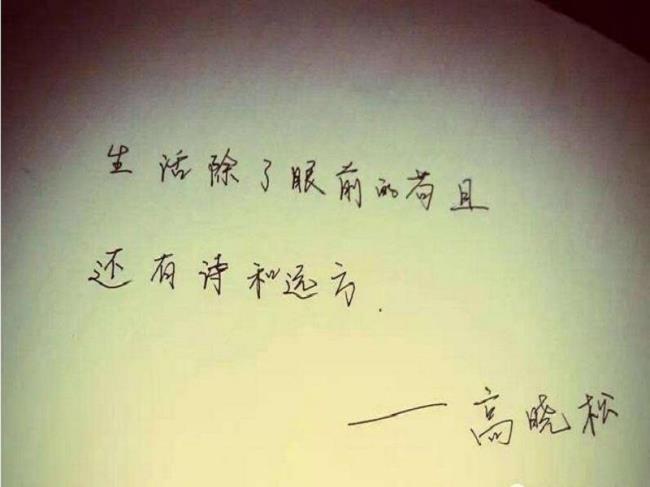 生活除了眼前的苟且
还有诗和远方.
——高晓松